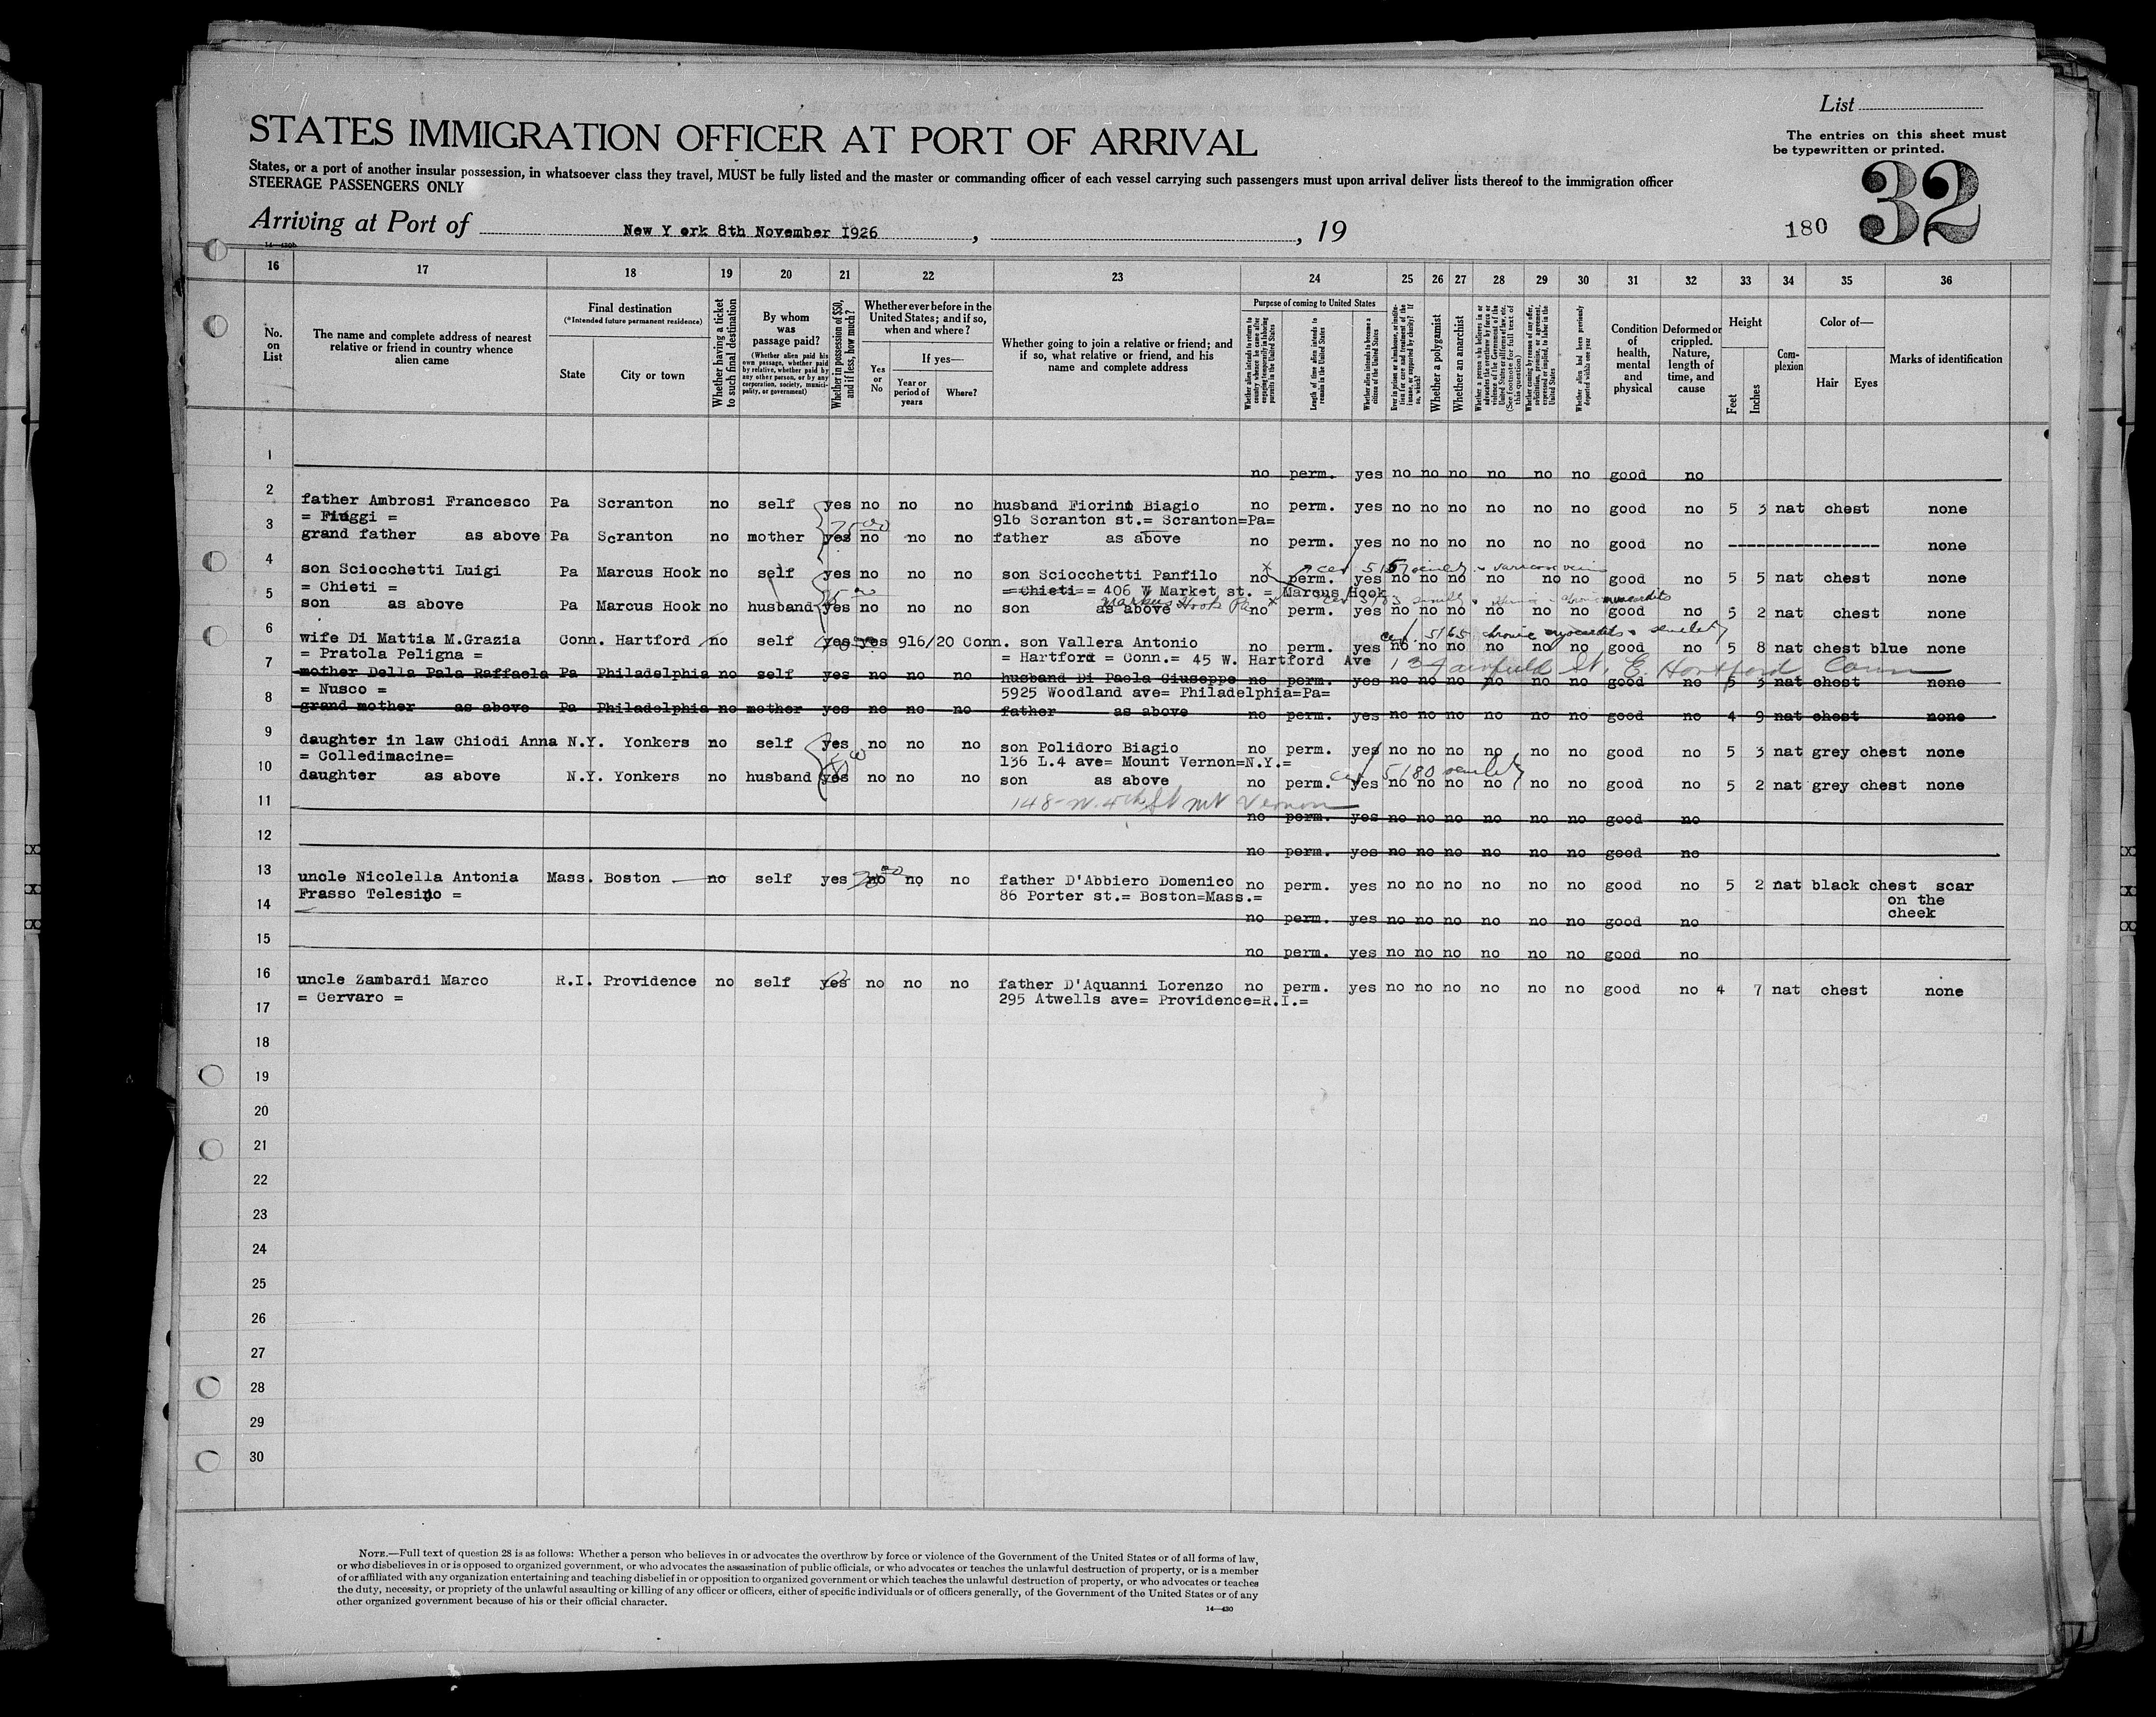 List
STATES IMMIGRATION OFFICER AT PORT OF ARRIVAL
The entries on this sheet must
be typewritten or printed.
States, or a port of another insular possession, in whatsoever class they travel, MUST be fully listed and the master or commanding officer of each vessel carrying such passengers must upon arrival deliver lists thereof to the immigration officer
STEERAGE PASSENGERS ONLY
32
180
Arriving at Port of New Y ork 8th November I926 , , 19
14—430b
16 17 18 19 20 21 22 23 24 25 26 27 28 29 30 31 32 33 34 35 36
No. on List
The name and complete address of nearest relative or friend in country whence alien came
Final destination
(*Intended future permanent residence)
State
City or town
Whether having a ticket to such final destination
By whom was passage paid?
(Whether alien paid his own passage, whether paid by relative, whether paid by any other person, or by any corporation, society, municipality, or government)
Whether in possession of $50, and if less, how much?
Whether ever before in the United States; and if so, when and where?
Yes or No
If yes—
Year or period of years
Where?
Whether going to join a relative or friend; and if so, what relative or friend, and his name and complete address
Purpose of coming to United States
Whether alien intends to return to country whence he came after engaging temporarily in laboring pursuits in the United States
Length of time alien intends to remain in the United States
Whether alien intends to become a citizen of the United States
Ever in prison or almshouse, or institution for care and treatment of the insane, or supported by charity? If so, which?
Whether a polygamist
Whether an anarchist
Whether a person who believes in or advocates the overthrow by force or violence of the Government of the United States or all forms of law, etc. (See footnote for full text of this question)
Whether coming by reason of any offer, solicitation, promise, or agreement, expressed or implied, to labor in the United States
Whether alien had been previously deported within one year
Condition of health, mental and physical
Deformed or crippled. Nature, length of time, and cause
Height
Feet
Inches
Complexion
Color of—
Hair
Eyes
Marks of identification
1 no perm. yes no no no no no no good no
2 father Ambrosi Francesco Pa Scranton no self yes no no no husband Fiorini Biagio no perm. yes no no no no no no good no 5 3 nat chest none
= Fiuggi = 916 Scranton st.= Scranton=Pa=
3 grand father as above Pa Scranton no mother yes no no no father as above no perm. yes no no no no no no good no ---------------- none
4 son Sciocchetti Luigi Pa Marcus Hook no self yes no no no son Sciocchetti Panfilo no perm. yes no no no no no no good no 5 5 nat chest none
= Chieti = = Chieti = 406 W Market st. = Marcus Hook
Markus Hook Pa
5 son as above Pa Marcus Hook no husband yes no no no son as above no perm. yes no no no no no no good no 5 2 nat chest none
cer. 5165 chronic myocarditis & senility
6 wife Di Mattia M.Grazia Conn. Hartford no self yes yes 916/20 Conn. son Vallera Antonio no perm. yes no no no no no no good no 5 8 nat chest blue none
= Pratola Peligna = = Hartford = Conn.= 45 W. Hartford Ave Fairfield St. E. Hartford Conn
7 mother Della Pala Raffaela Pa Philadelphia no self yes no no no husband Di Paola Giuseppe no perm. yes no no no no no no good no 5 3 nat chest none
= Nusco = 5925 Woodland ave= Philadelphia=Pa=
8 grand mother as above Pa Philadelphia no mother yes no no no father as above no perm. yes no no no no no no good no 4 9 nat chest none
9 daughter in law Chiodi Anna N.Y. Yonkers no self yes no no no son Polidoro Biagio no perm. yes no no no no no no good no 5 3 nat grey chest none
= Colledimacine= 136 L.4 ave= Mount Vernon=N.Y.=
cer 5180 senility
10 daughter as above N.Y. Yonkers no husband yes no no no son as above no perm. yes no no no no no no good no 5 2 nat grey chest none
148- W. 4th St Mt Vernon
11 no perm. yes no no no no no no good no
12 no perm. yes no no no no no no good no
13 uncle Nicolella Antonia Mass. Boston no self yes no no no father D'Abbiero Domenico no perm. yes no no no no no no good no 5 2 nat black chest scar
Frasso Telesino = 86 Porter st.= Boston=Mass.= on the
cheek
14 no perm. yes no no no no no no good no
15 no perm. yes no no no no no no good no
16 uncle Zambardi Marco R.I. Providence no self yes no no no father D'Aquanni Lorenzo no perm. yes no no no no no no good no 4 7 nat chest none
= Cervaro = 295 Atwells ave= Providence=R.I.=
17
18
19
20
21
22
23
24
25
26
27
28
29
30
NOTE.—Full text of question 28 is as follows: Whether a person who believes in or advocates the overthrow by force or violence of the Government of the United States or of all forms of law,
or who disbelieves in or is opposed to organized government, or who advocates the assassination of public officials, or who advocates or teaches the unlawful destruction of property, or is a member
of or affiliated with any organization entertaining and teaching disbelief in or opposition to organized government or which teaches the unlawful destruction of property, or who advocates or teaches
the duty, necessity, or propriety of the unlawful assaulting or killing of any officer or officers, either of specific individuals or of officers generally, of the Government of the United States or of any
other organized government because of his or their official character.
14—430